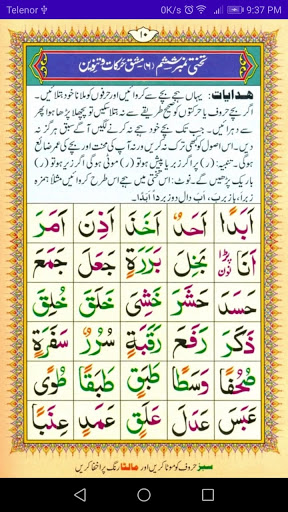 Telenor
0K/s 9:37 PM
۱۰
تختی نمبر ششم (۶) مشق حرکات و تنوین
ھدایات: یہاں ہجے بچے سے کروائیں اور حرفوں کو ملانا خود بتلائیں۔
اگر بچے حروف یا حرکتوں کو صحیح طریقے سے نہ بتلا سکیں تو پچھلا پڑھا ہوا پھر
سے دہرائیں۔ جب تک بچے خود ہجے نہ کرنے لگیں آگے سبق ہرگز نہ دیں
اس اصول کو کبھی ترک نہ کریں ورنہ آپ کی محنت اور بچے کی عمر ضائع
ہوگی۔ تنبیہ: (ر) پر اگر زبر یا پیش ہو تو (ر) موٹی ہوگی اگر زیر ہو تو (ر)
باریک پڑھیں گے۔ نوٹ: اس تختی میں ہجے اس طرح کروائیں مثلاً ہمزہ
زبر اَ، با زبر بَ، اَبَ دال دو زبر دًا اَبَدًا۔
اَبَدًا اَحَدٌ اَخَذَ اَذِنَ اَمَرَ
اَنَا نون پڑا بَخِلَ بَرَرَةٍ جَعَلَ جَمَعَ
حَسَدَ حَشَرَ خَشِیَ خَلَقَ خُلِقَ
ذَکَرَ رَفَعَ رَقَبَةٍ سُرُرٌ سَفَرَةٍ
صُحُفًا وَسَطًا طَبَقٍ طَبَقًا طُوًی
عَبَسَ عَدَلَ عَلَقٍ عَمَدٍ عِنَبًا
سبز حروف کو موٹا کریں اور مالٹا رنگ پر اخفا کریں